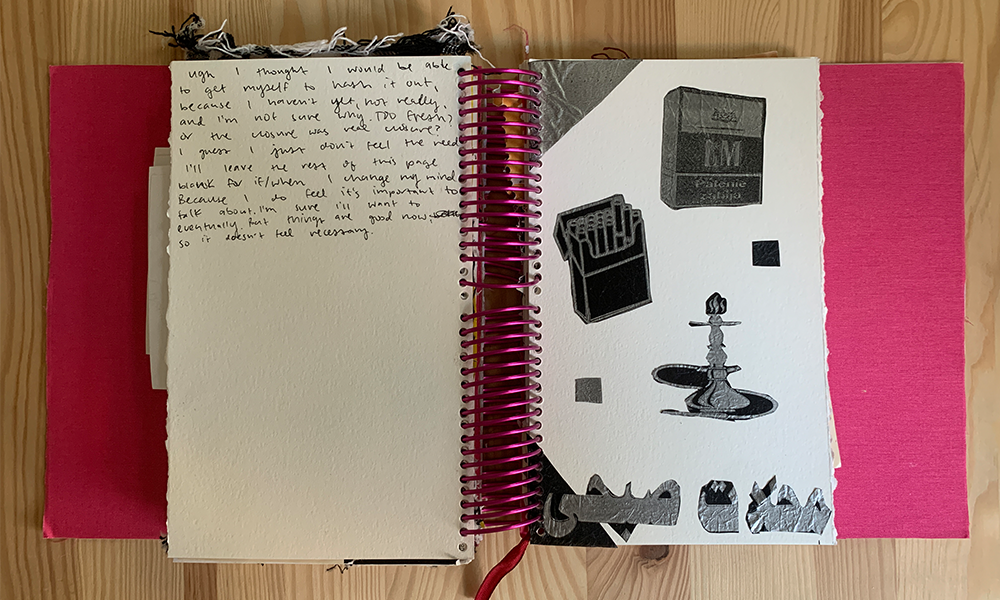 ugh I thought I would be able
to get myself to hash it out,
because I haven't yet, not really,
and I'm not sure why. TOO Fresh?
or the closure was real closure?
I guess I just don't feel the need
I'll leave the rest of this page
blank for if/when I change my mind
Because I do feel it's important to
talk about. I'm sure I'll want to
eventually. But things are good now.
so it doesn't feel necessary.
Pátenie
zabíja